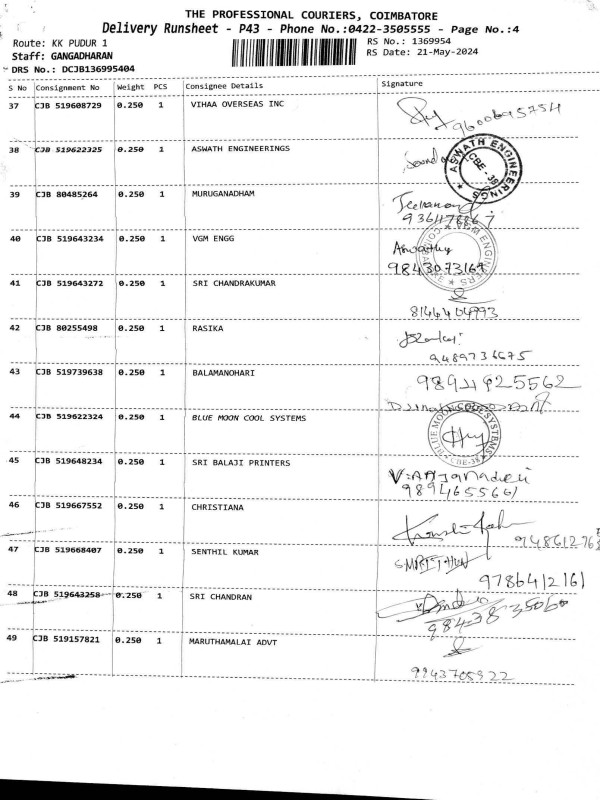 THE PROFESSIONAL COURIERS, COIMBATORE
Delivery Runsheet - P43 - Phone No.:0422-3505555 - Page No.:4
Route: KK PUDUR 1
RS No.: 1369954
Staff: GANGADHARAN
RS Date: 21-May-2024
DRS No.: DCJB136995404
S No Consignment No Weight PCS Consignee Details Signature
37 CJB 519608729 0.250 1 VIHAA OVERSEAS INC
9600695754
38 CJB 519622325 0.250 1 ASWATH ENGINEERINGS
ASWATH ENGINEERINGS
CBE - 38
39 CJB 80485264 0.250 1 MURUGANADHAM
9361178867
40 CJB 519643234 0.250 1 VGM ENGG
VGM ENGINEERS
Aswathy
9843073169
41 CJB 519643272 0.250 1 SRI CHANDRAKUMAR
8146404993
42 CJB 80255498 0.250 1 RASIKA
9489736675
43 CJB 519739638 0.250 1 BALAMANOHARI
9894925562
44 CJB 519622324 0.250 1 BLUE MOON COOL SYSTEMS
BLUE MOON SYSTEMS
CBE-38
45 CJB 519648234 0.250 1 SRI BALAJI PRINTERS
9894655661
46 CJB 519667552 0.250 1 CHRISTIANA
47 CJB 519668407 0.250 1 SENTHIL KUMAR
9786412161
48 CJB 519643258 0.250 1 SRI CHANDRAN
49 CJB 519157821 0.250 1 MARUTHAMALAI ADVT
9943705922